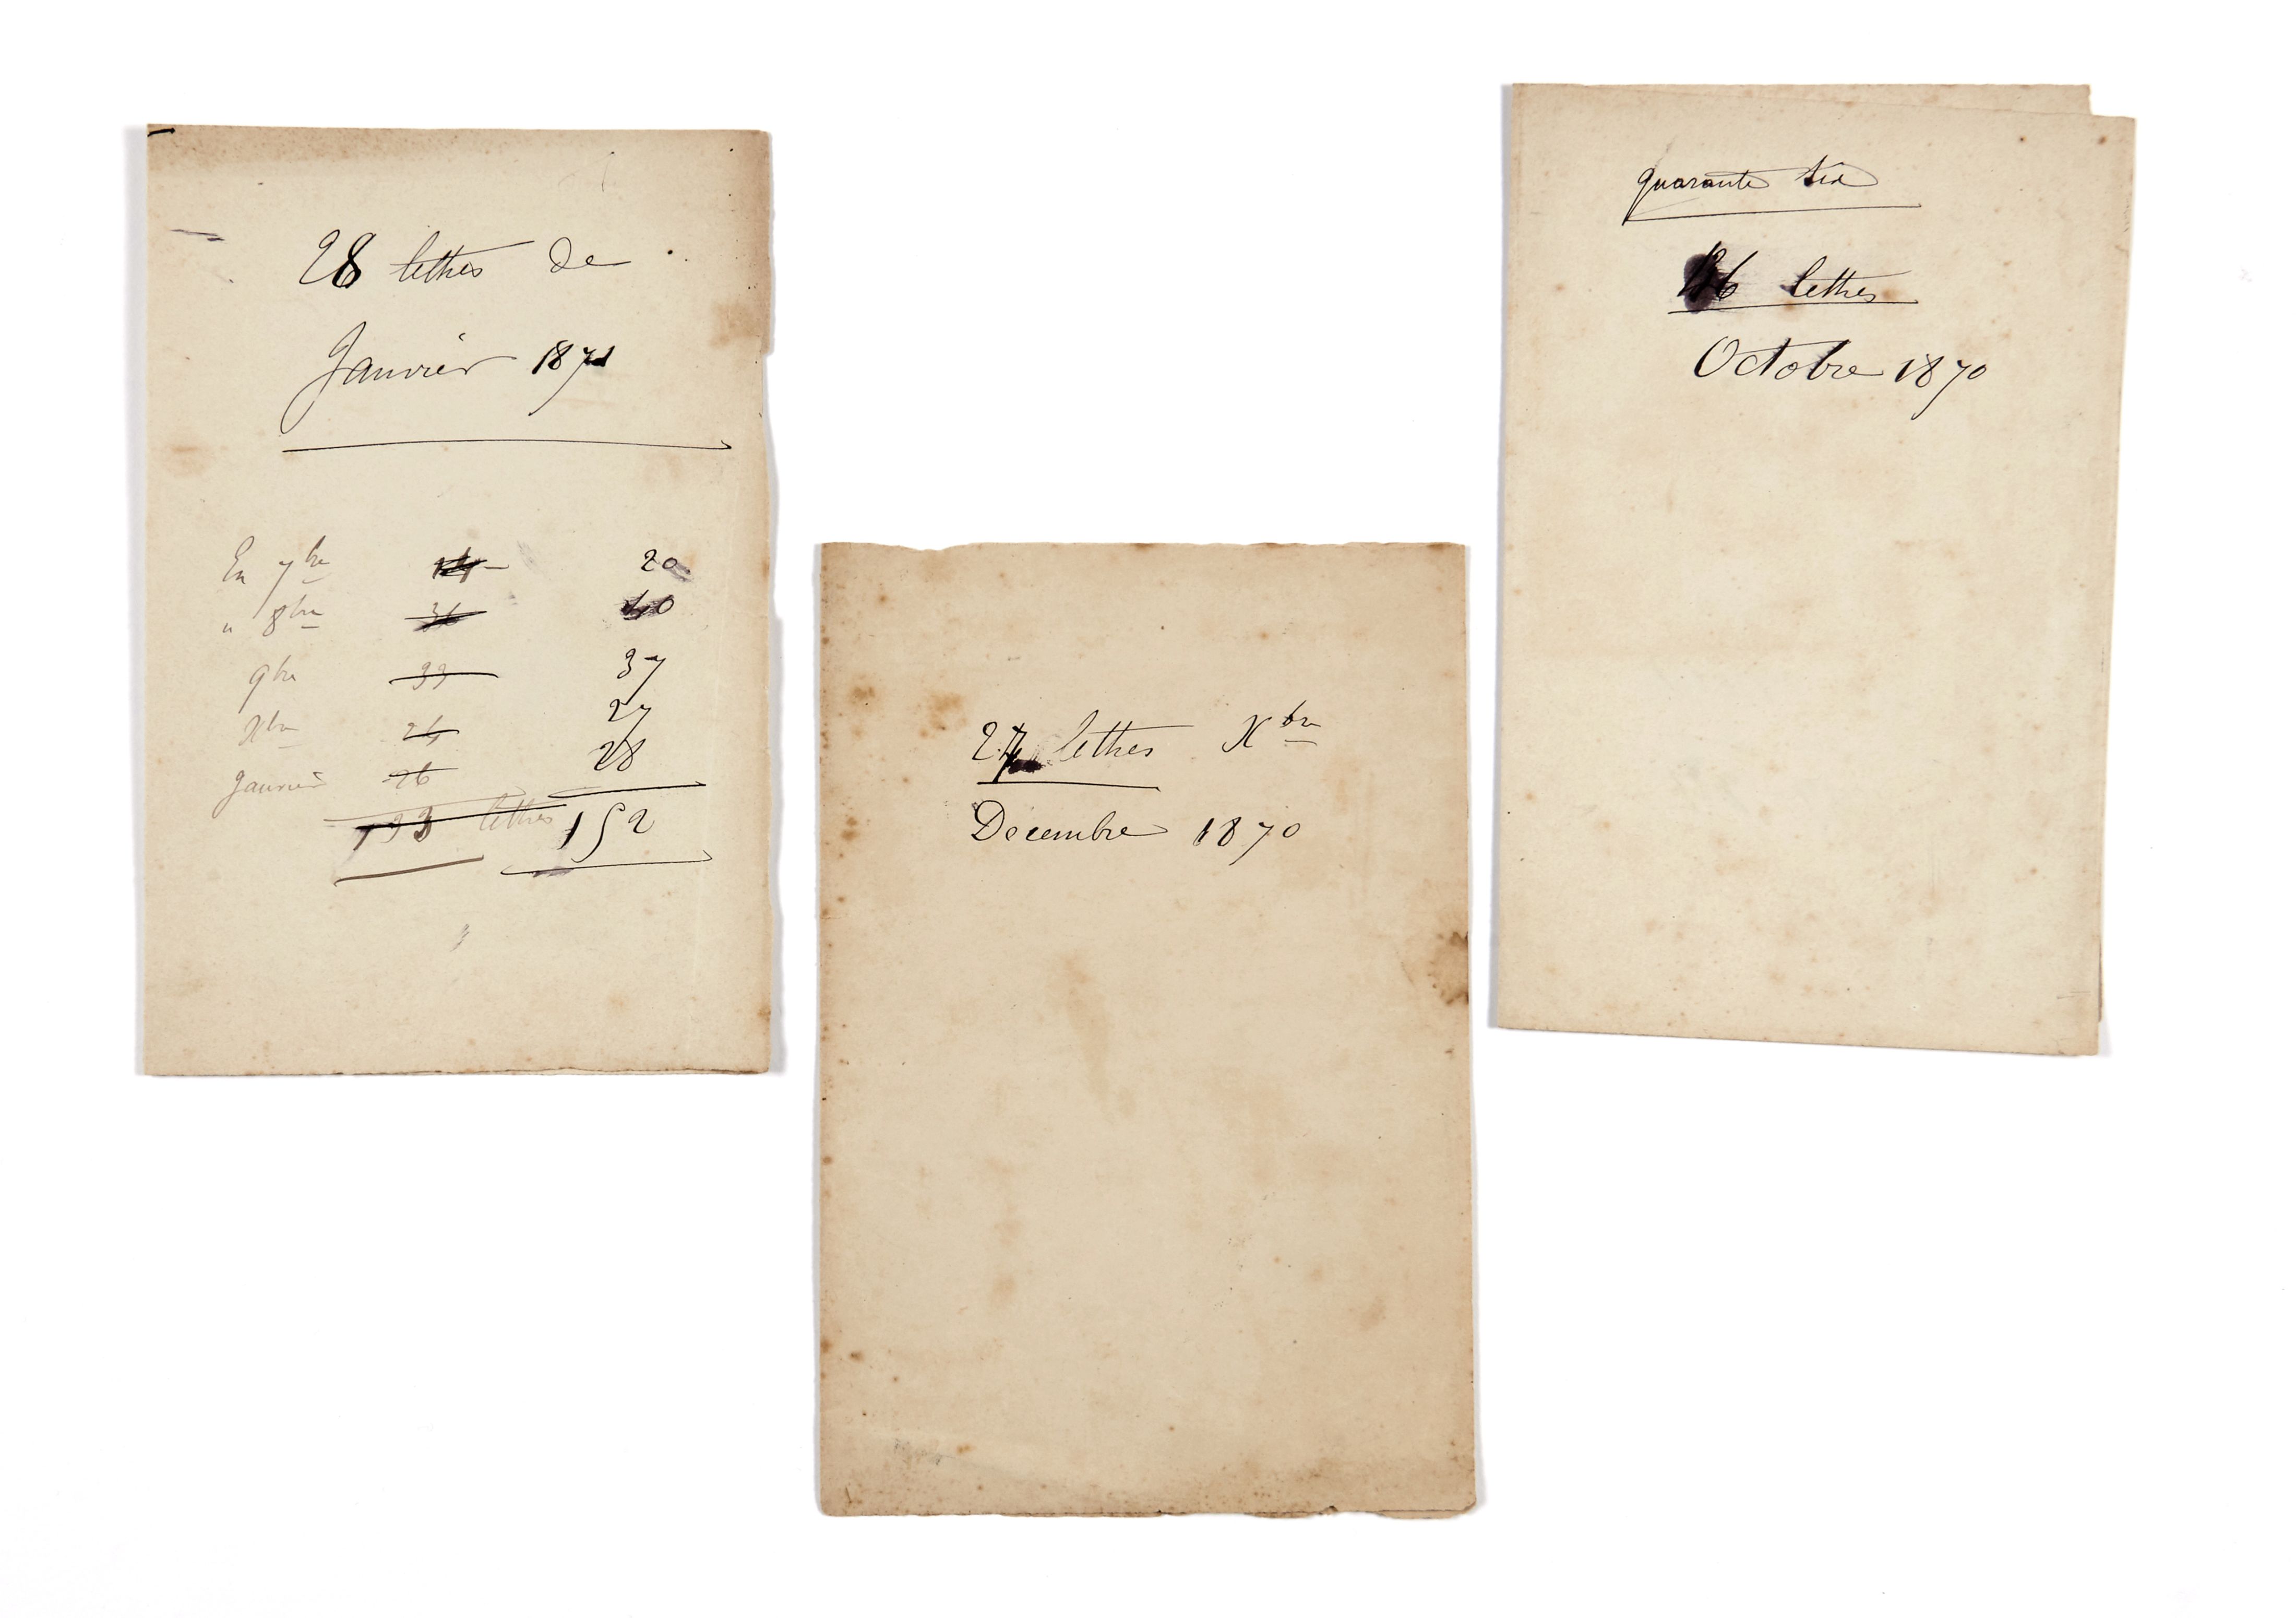 28 lettres de
Janvier 1871
En 7bre 14 20
" 8bre 36 40
9bre 33 37
Xbre 24 27
Janvier 26 28
133 lettres 152
27 lettres Xbre
Décembre 1870
quarante six
46 lettres
Octobre 1870